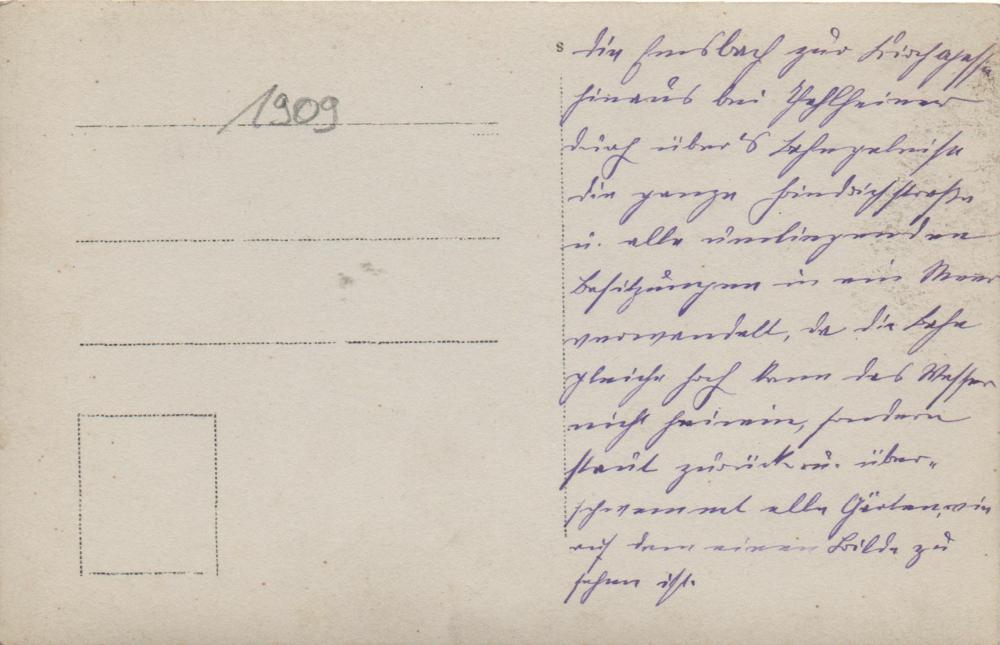 1909
s
die Emsbach zur Kirchgasse
hinaus bei Pehlheiner
durch über's Bahngeleise
die ganze Heinrichstraße
u. alle umliegenden
Besitzungen in ein Meer
verwandelt, da die Lahn
gleich hoch kann das Wasser
nicht herein, sondern
staut zurück u. über-
schwemmt alle Gärten, wie
auf dem einen Bilde zu
sehen ist.